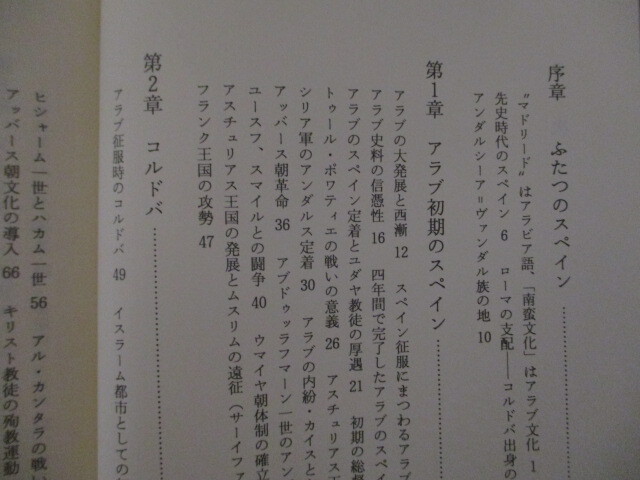 序章 ふたつのスペイン
“マドリード”はアラビア語、「南蛮文化」はアラブ文化 1
先史時代のスペイン 6 ローマの支配――コルドバ出身の
アンダルシーア＝ヴァンダル族の地 10
第1章 アラブ初期のスペイン
アラブの大発展と西漸 12 スペイン征服にまつわるアラブ
アラブ史料の信憑性 16 四年間で完了したアラブのスペイ
アラブのスペイン定着とユダヤ教徒の厚遇 21 初期の総督
トゥール・ポワティエの戦いの意義 26 アスチュリアス王
シリア軍のアンダルス定着 30 アラブの内紛・カイスと
アッバース朝革命 36 アブドゥッラフマーン一世のアン
ユースフ、スマイルとの闘争 40 ウマイヤ朝体制の確立
アスチュリアス王国の発展とムスリムの遠征（サーイファ
フランク王国の攻勢 47
第2章 コルドバ
アラブ征服時のコルドバ 49 イスラーム都市としての
ヒシャーム一世とハカム一世 56 アル・カンタラの戦い
アッバース朝文化の導入 66 キリスト教徒の殉教運動